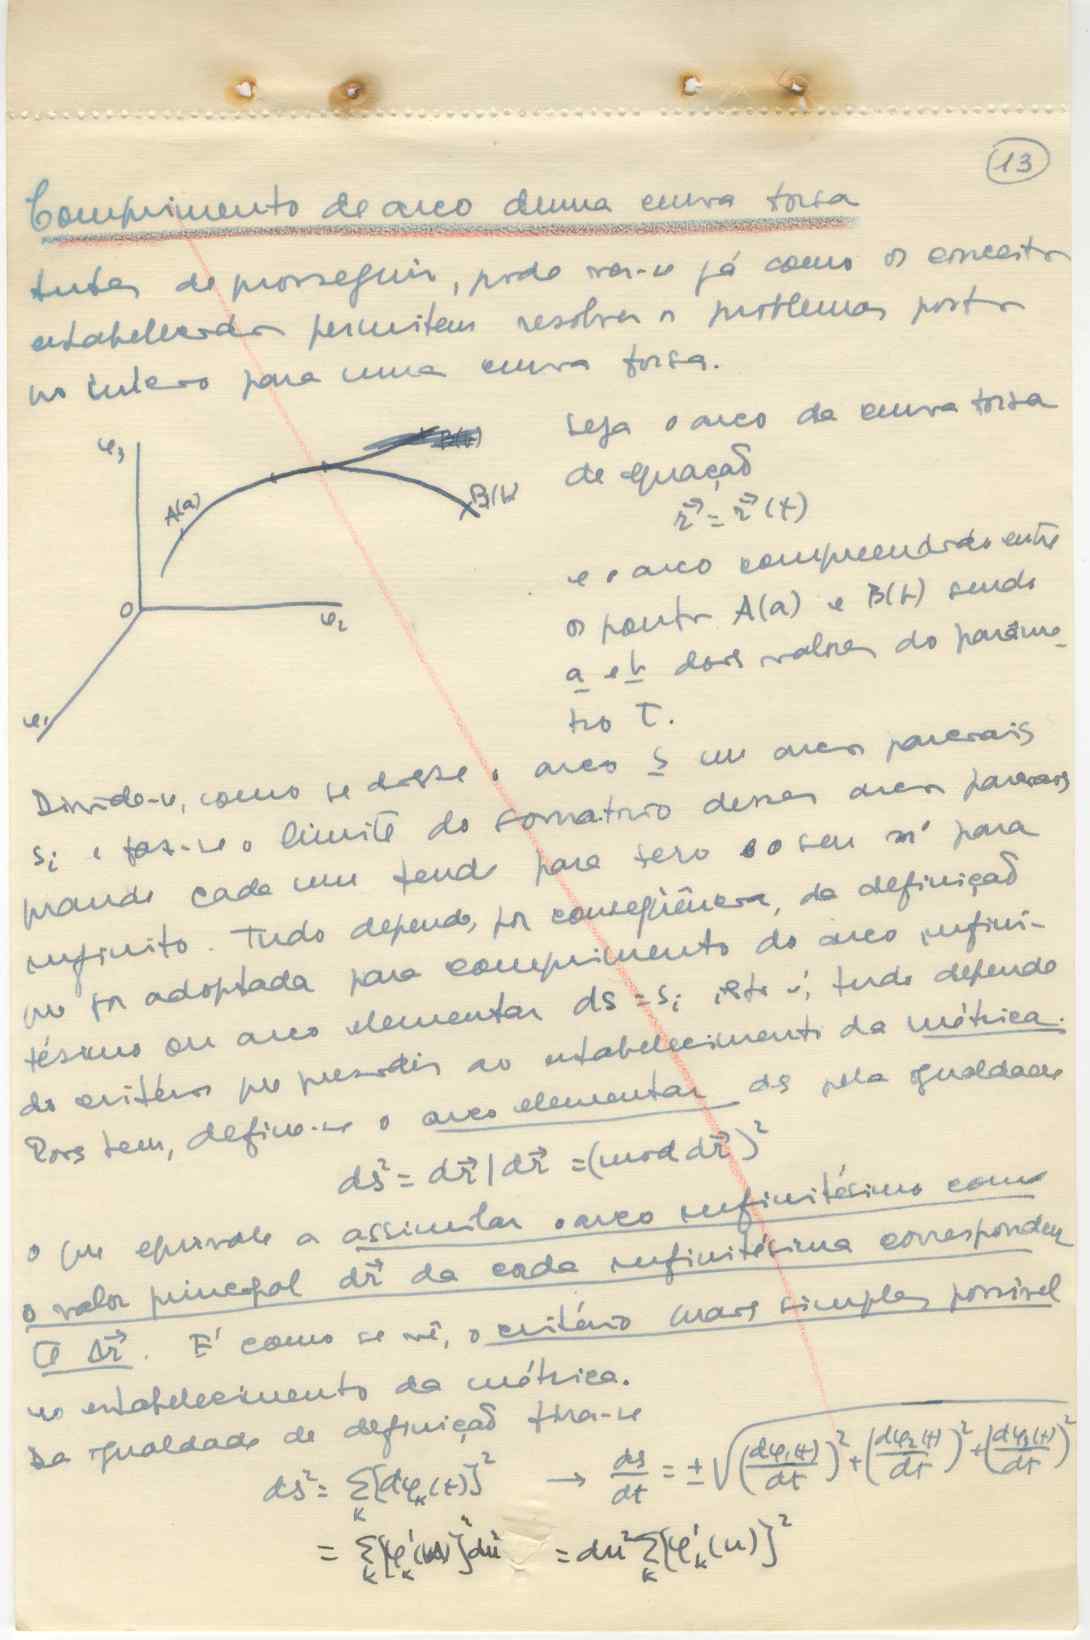 13
Comprimento de arco duma curva torsa
Antes de prosseguir, pode ver-se já como os conceitos
estabelecidos permitem resolver os problemas postos
no início para uma curva torsa.
φ₃
A(a)
B(b)
O
φ₂
φ₁
Seja o arco da curva torsa
de equação
r⃗ = r⃗(t)
e o arco compreendido entre
os pontos A(a) e B(b) sendo
a e b dois valores do parâme-
tro t.
Divide-se, como se disse o arco s em arcos parciais
sᵢ e faz-se o limite do somatório desses arcos parciais
quando cada um tende para zero e o seu nº para
infinito. Tudo depende, por conseqüência, da definição
que for adoptada para comprimento do arco infini-
tésimo ou arco elementar ds = sᵢ isto é, tudo depende
do critério que presidir ao estabelecimento da métrica.
Pois bem, define-se o arco elementar ds pela igualdade
ds² = dr⃗ | dr⃗ = (mod dr⃗)²
o que equivale a assimilar o arco infinitésimo com
o valor principal dr⃗ da corda infinitésima correspondente
a Δr⃗. É como se vê, o critério mais simples possível
no estabelecimento da métrica.
Da igualdade de definição tira-se
ds² = Σₖ [dφₖ(t)]² → ds/dt = ± √((dφ₁(t)/dt)² + (dφ₂(t)/dt)² + (dφ₃(t)/dt)²)
= Σₖ [φ'ₖ(u)]² du² = du² Σₖ [φ'ₖ(u)]²